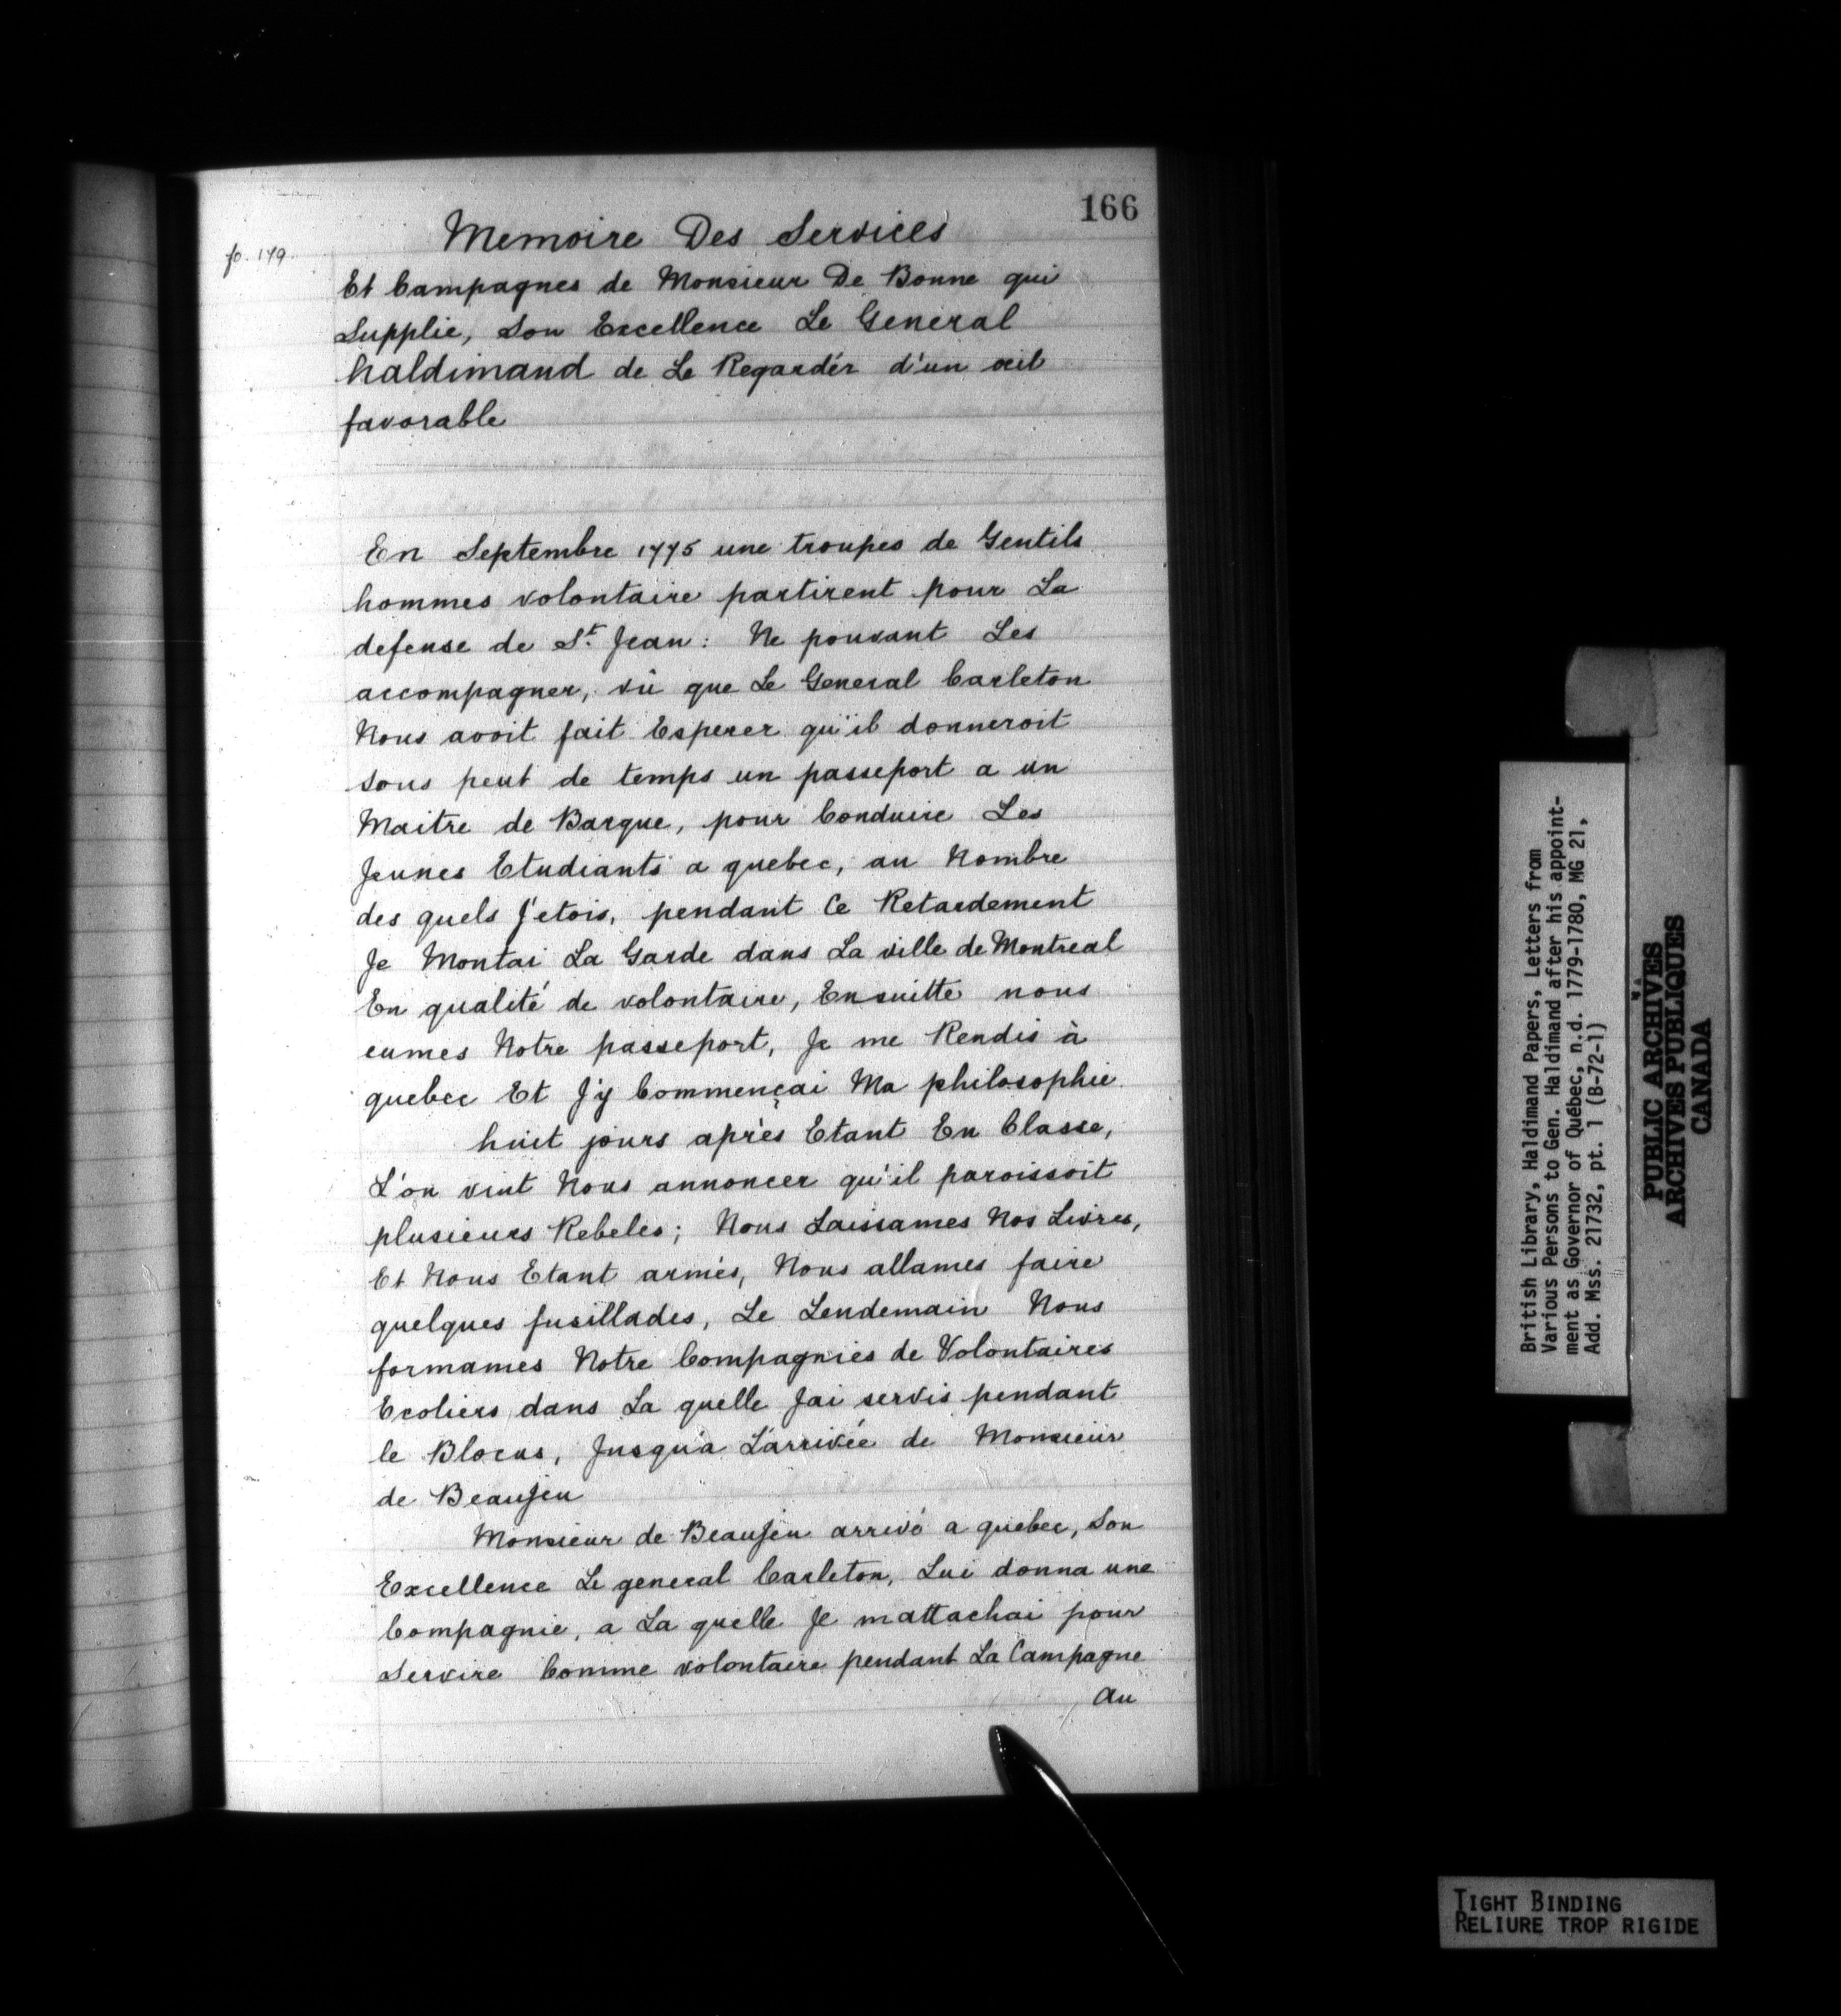 166
fo. 179.
Memoire Des Services
Et Campagnes de Monsieur De Bonne qui
Supplie, Son Excellence Le General
haldimand de Le Regardér d'un œil
favorable
En Septembre 1775 une troupes de Gentils
hommes volontaire partirent pour La
defense de St. Jean: Ne pouvant Les
accompagner, vû que Le General Carleton
Nous avoit fait Esperer qu'il donneroit
sous peut de temps un passeport a un
Maitre de Barque, pour Conduire Les
Jeunes Etudiants a quebec, au Nombre
des quels J'etois, pendant Ce Retardement
Je Montai La Garde dans La ville de Montreal
En qualité de volontaire, Ensuitte nous
eumes Notre passeport, Je me Rendis à
quebec Et J'y Commençai Ma philosophie
huit jours après Etant En Classe,
L'on vint Nous annoncer qu'il paroissoit
plusieurs Rebeles; Nous Laissames Nos Livres,
Et Nous Etant armés, Nous allames faire
quelques fusillades, Le Lendemain Nous
formames Notre Compagnies de Volontaires
Ecoliers dans La quelle Jai servis pendant
le Blocus, Jusqu'a L'arrivée de Monsieur
de Beaujeu
Monsieur de Beaujeu arrivé a quebec, Son
Excellence Le general Carleton, Lui donna une
Compagnie, a La quelle Je mattachai pour
Servire Comme volontaire pendant La Campagne
au
British Library, Haldimand Papers, Letters from
Various Persons to Gen. Haldimand after his appoint-
ment as Governor of Québec, n.d. 1779-1780, MG 21,
Add. Mss. 21732, pt. 1 (B-72-1)
PUBLIC ARCHIVES
ARCHIVES PUBLIQUES
CANADA
TIGHT BINDING
RELIURE TROP RIGIDE